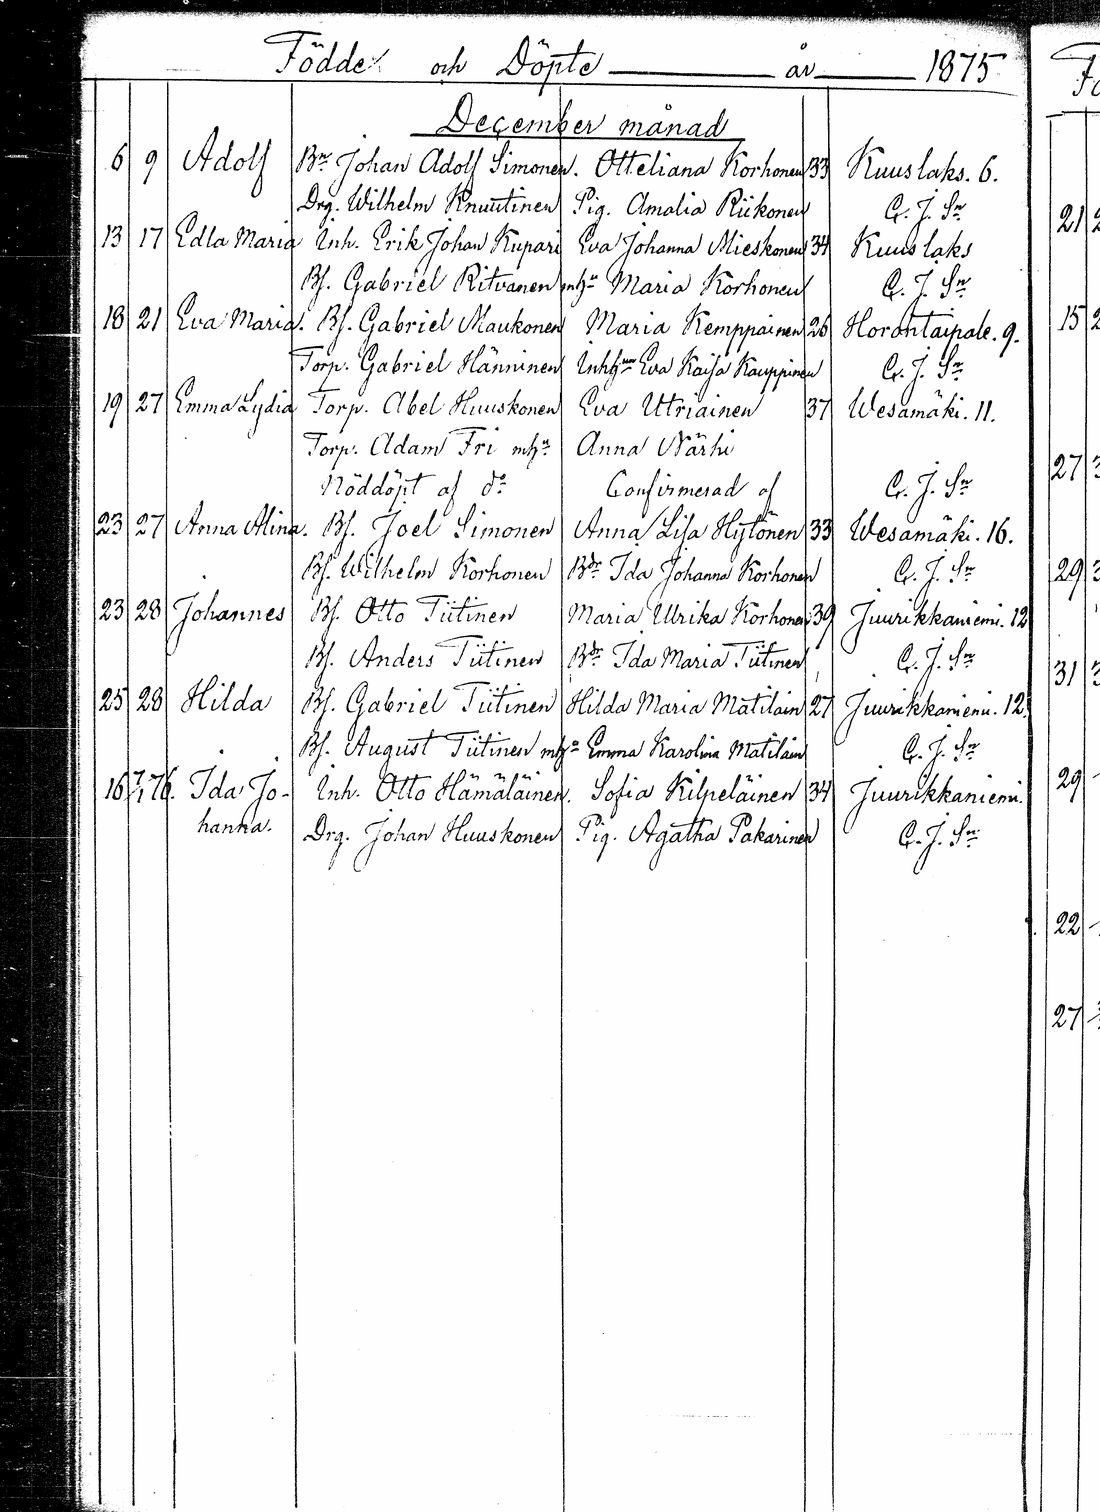 Födde och Döpte år 1875
December månad
6 9 Adolf Bn Johan Adolf Simonen. Otteliana Korhonen 33 Kuuslaks. 6.
Drg. Wilhelm Knuutinen Pig. Amalia Riikonen C. J. Sn
13 17 Edla Maria Inh. Erik Johan Kupari Eva Johanna Mieskonen 34 Kuuslaks
Bf. Gabriel Ritvanen mhn Maria Korhonen C. J. Sn
18 21 Eva Maria. Bf. Gabriel Maukonen Maria Kemppainen 26 Horontaipale. 9.
Torp. Gabriel Hänninen Eva Kaisa Kauppinen C. J. Sn
19 27 Emma Lydia Torp. Abel Huuskonen Eva Utriainen 37 Wesamäki. 11.
Torp. Adam Fri mhn Anna Närhi
Nöddöpt af do Confirmerad af C. J. Sn
23 27 Anna Alina. Bf. Joel Simonen Anna Lisa Hytönen 33 Wesamäki. 16.
Bf. Wilhelm Korhonen Bdr Ida Johanna Korhonen C. J. Sn
23 28 Johannes Bf. Otto Tiitinen Maria Ulrika Korhonen 39 Juurikkaniemi. 12
Bf. Anders Tiitinen Bdr Ida Maria Tiitinen C. J. Sn
25 28 Hilda Bf. Gabriel Tiitinen Hilda Maria Matilain 27 Juurikkaniemi. 12.
Bf. August Tiitinen mhn Emma Karolina Matilain C. J. Sn
16 7/1 76. Ida Jo- Inh. Otto Hämäläinen. Sofia Kilpeläinen 34 Juurikkaniemi.
hanna. Drg. Johan Huuskonen Pig. Agatha Pakarinen C. J. Sn
21
15
27
29
31
29
22
27